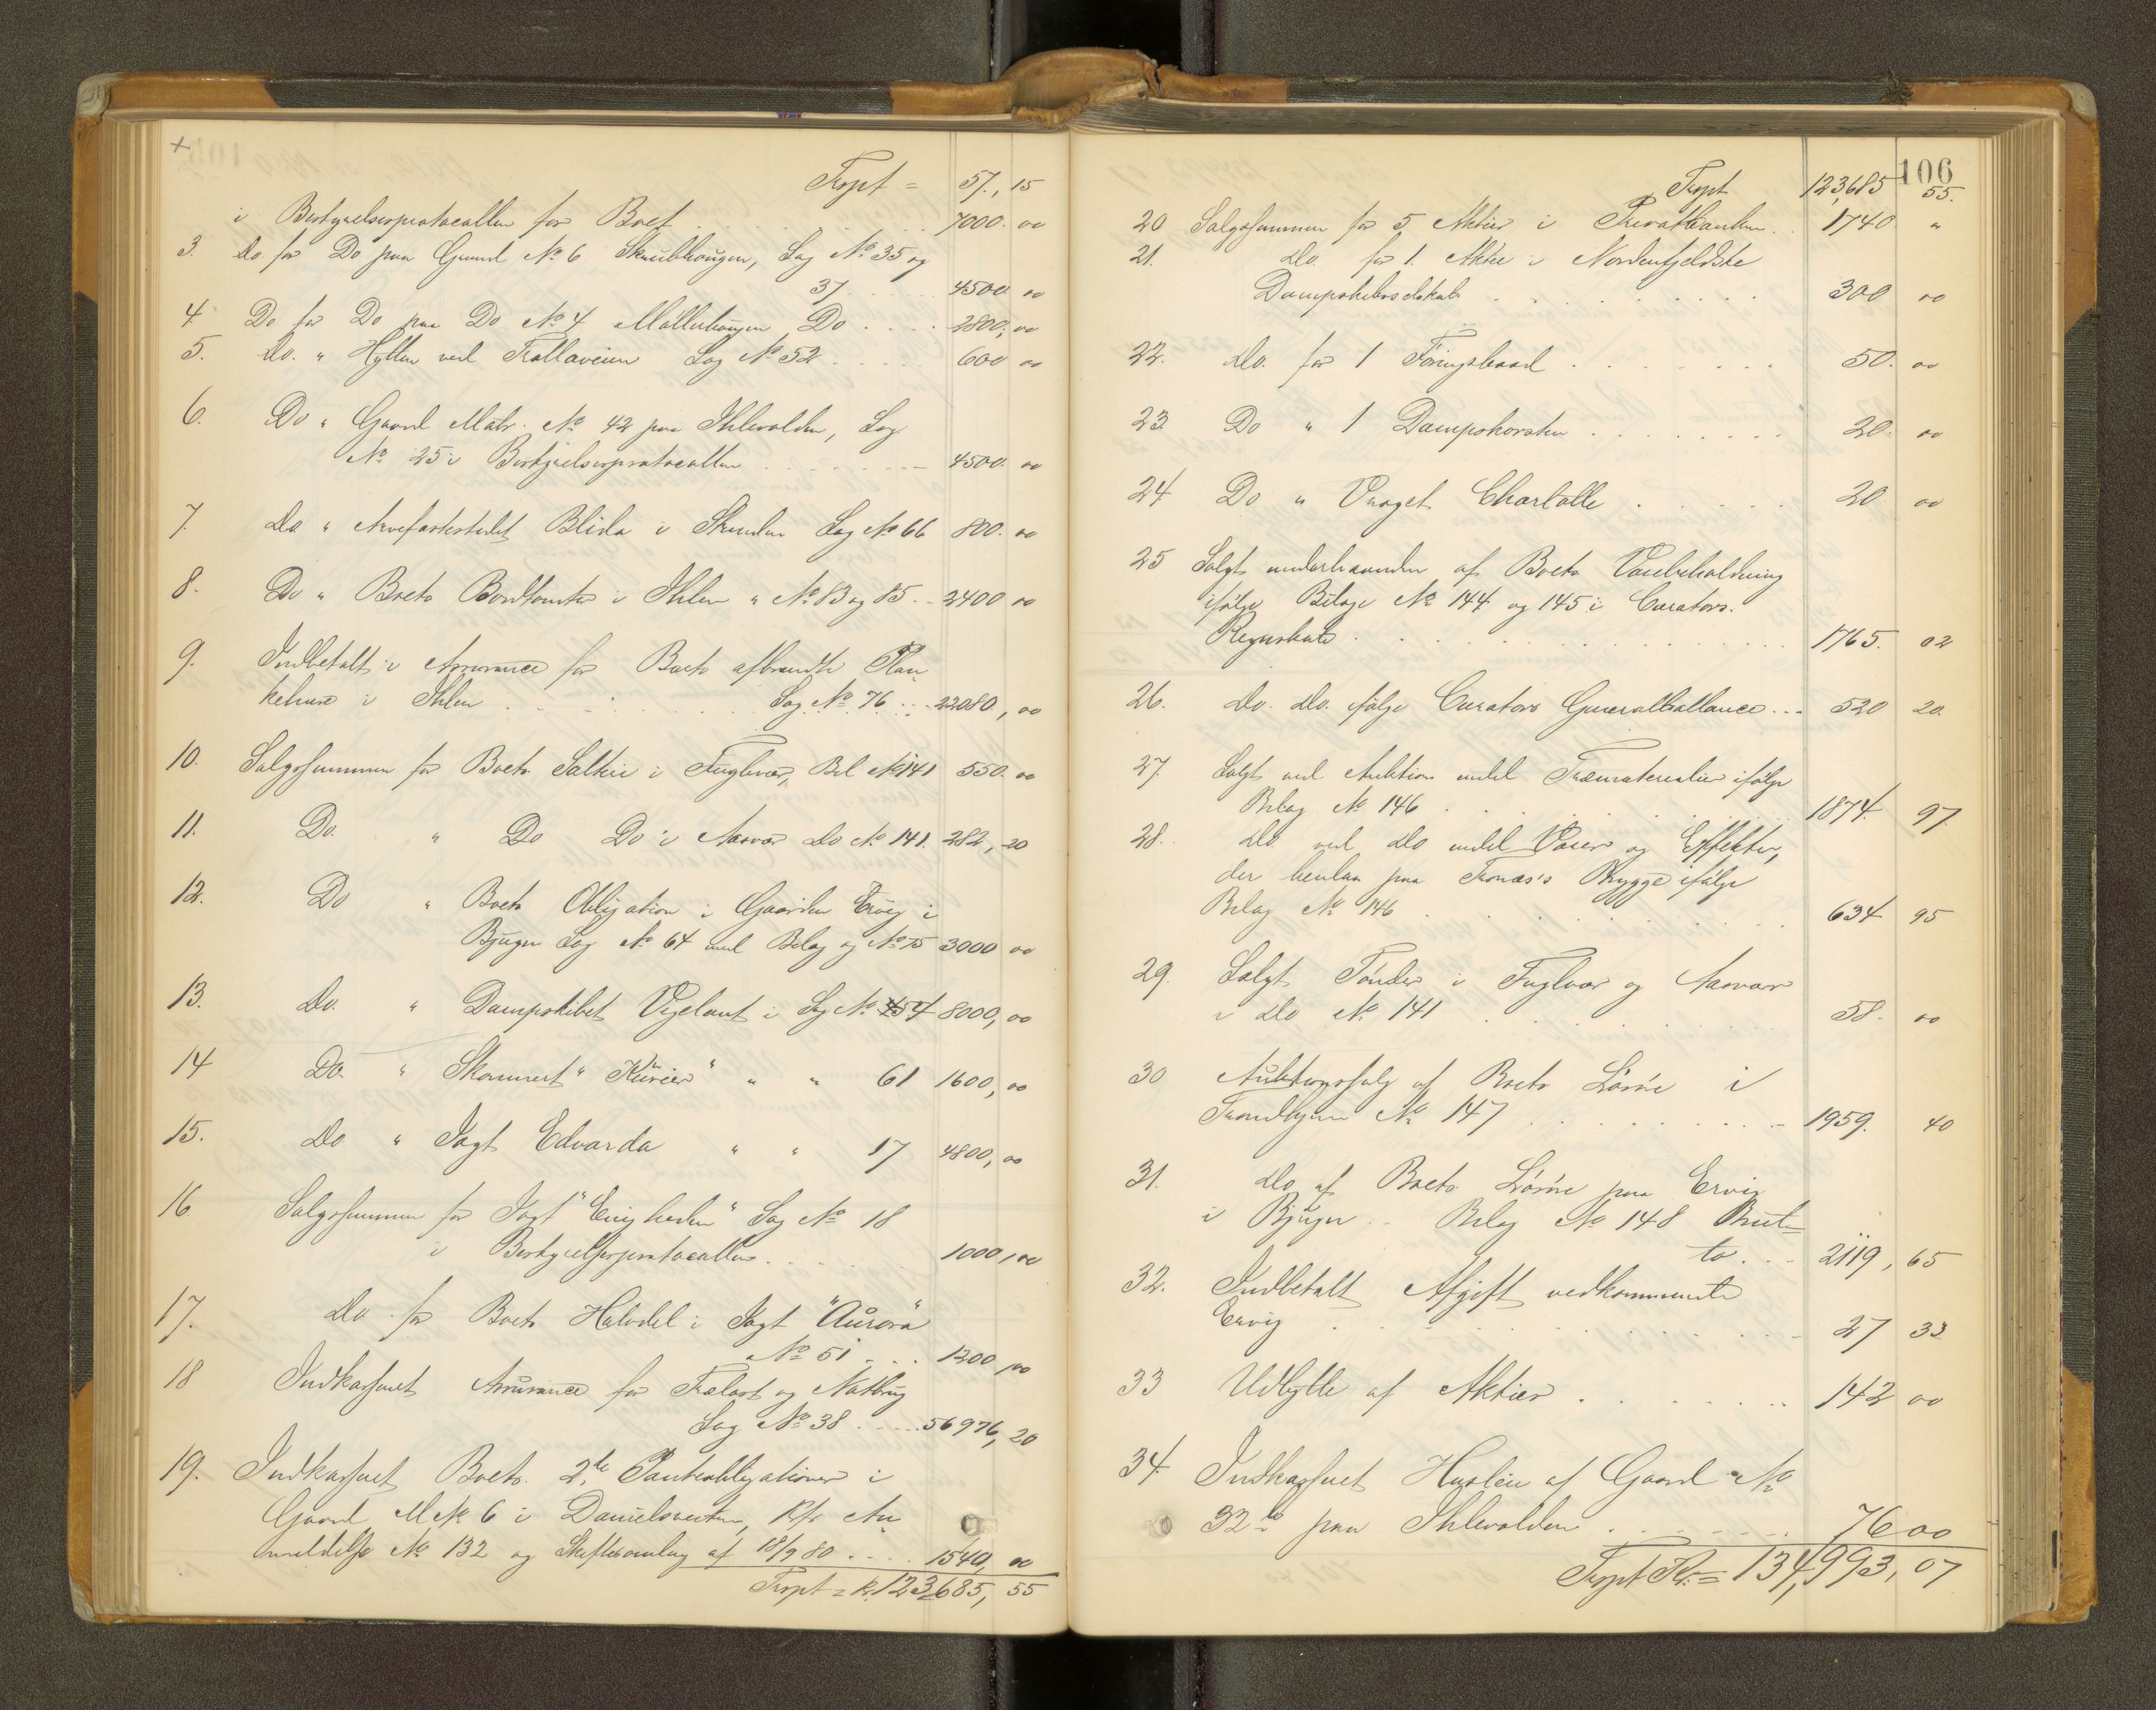 Trspt = 57., 15
i Bestyrelsesprotocallen for Boet 7000. 00
3. Do for Do paa Grund No 6 Skrubhougen, Lag No 35 og
37 4500 00
4. Do for Do paa Do No 4 Møllerhougen Do 2800, 00
5. Do. " Hytten ved Trollaveien Lag No 52 600 00
6. Do " Gaard Matr. No 42 paa Ihlevolden, Lag
No 25 i Bestyrelsesprotocallen 4500. 00
7. Do " Arvefæstestedet Blida i Strinden Lag No 66 800. 00
8. Do " Boets Bordtomter i Ihlen " No 83 og 85 2400 00
9. Indbetalt i Assurance for Boets afbrændte Plan
kehuse i Ihlen Lag No 76 22080, 00
10. Salgssummen for Boets Salterie i Fuglevær, Bil No 141 550. 00
11. Do. " Do Do i Aasvær Do No 141. 282, 20
12. Do " Boets Obligation i Gaarden Ervig i
Bjugn Lag No 64 med Bilag og No 75 3000 00
13. Do. " Dampskibet Vigelant i Lag No 54 8000, 00
14 Do. " Skonnert "Kurér" " " 61 1600, 00
15. Do " Jagt Edvarda " " 17 4800, 00
16 Salgssummen for Jagt "Enigheden" Lag No 18
i Bestyrelsesprotocallen 1000, 00
17. Do for Boets Halvdel i Jagt "Aurora"
No 51 1200, 00
18 Indkasseret Assurance for Trælast og Natbrug
Lag No 38 56976, 20
19. Indkasseret Boets 2de Panteobligationer i
Gaard M No 6 i Danielsveiten, Kfr An
meldelse No 132 og Skiftesamling af 18/9 80 1540, 00
Trspt = Kr. 123685, 55
106
Trspt 123,685 55.
20 Salgssummen for 5 Aktier i Privatbanken 1740 "
21. Do. for 1. Aktie i Nordenfjeldske
Dampskibsselskab 300 00
22. Do. for 1 Føringsbaad 50. 00
23. Do " 1 Dampskorsten 20. 00
24 Do " Vraget Charlotte 20 00
25 Solgt underhaanden af Boets Varebeholdning
ifølge Bilage No 144 og 145 i Curators.
Regnskab 1765. 02
26. Do. Do. ifølge Curators Generalballance 520 20.
27. Solgt ved Auktion endel Træmaterialier ifølge
Bilag No 146 1874. 97
28. Do ved Do endel Varer og Effekter,
der henlaa paa Trones's Brygge ifølge
Bilag No 146 634 95
29. Solgt Tønder i Fuglvær og Aasvær
i Do No 141 58. 00
30 Auktionssalg af Boets Løsøre i
Trondhjem No 147 1959. 40
31. Do af Boets Løsøre paa Ervig
i Bjugn Bilag No 148 Brut=
to 2119, 65
32. Indbetalt Afgift vedkommende
Ervig 27 33
33 Udbytte af Aktier 142 00
34. Indkasseret Husleie af Gaard No
32 b paa Ihlevolden 76 00
Trspt Kr. = 134,993, 07